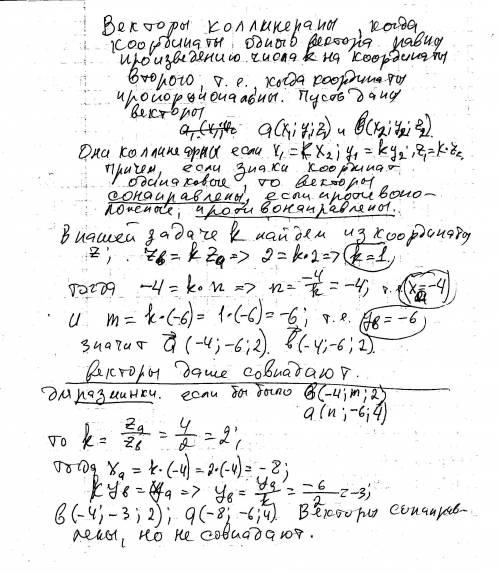 Векторы коллинераны, когда
координаты одного вектора равны
произведению числа k на координаты
второго, т.е. когда координаты
пропорциональны. Пусть даны
векторы
a(x₁; y₁; z₁) и b(x₂; y₂; z₂).
Они коллинеарны если x₁ = k x₂; y₁ = k y₂; z₁ = k·z₂.
Причем, если знаки координат
одинаковые то векторы
сонаправлены, если противопо-
ложные, противонаправлены.
В нашей задаче k найдем из координаты
z; z_b = k z_a => 2 = k·2 => k = 1,
тогда -4 = k·n => n = -4/k = -4, т.е. x_a = -4
И m = k·(-6) = 1·(-6) = -6; т.е. y_b = -6
значит a⃗(-4; -6; 2). b⃗(-4; -6; 2).
векторы даже совпадают.
Для разминки. если бы было b(-4; m; 2)
a(n; -6; 4)
то k = z_a/z_b = 4/2 = 2;
тогда x_a = k·(-4) = 2·(-4) = -8;
k y_b = y_a => y_b = y_a/k = -6/2 = -3;
b(-4; -3; 2); a(-8; -6; 4). Векторы сонаправ-
лены, но не совпадают.